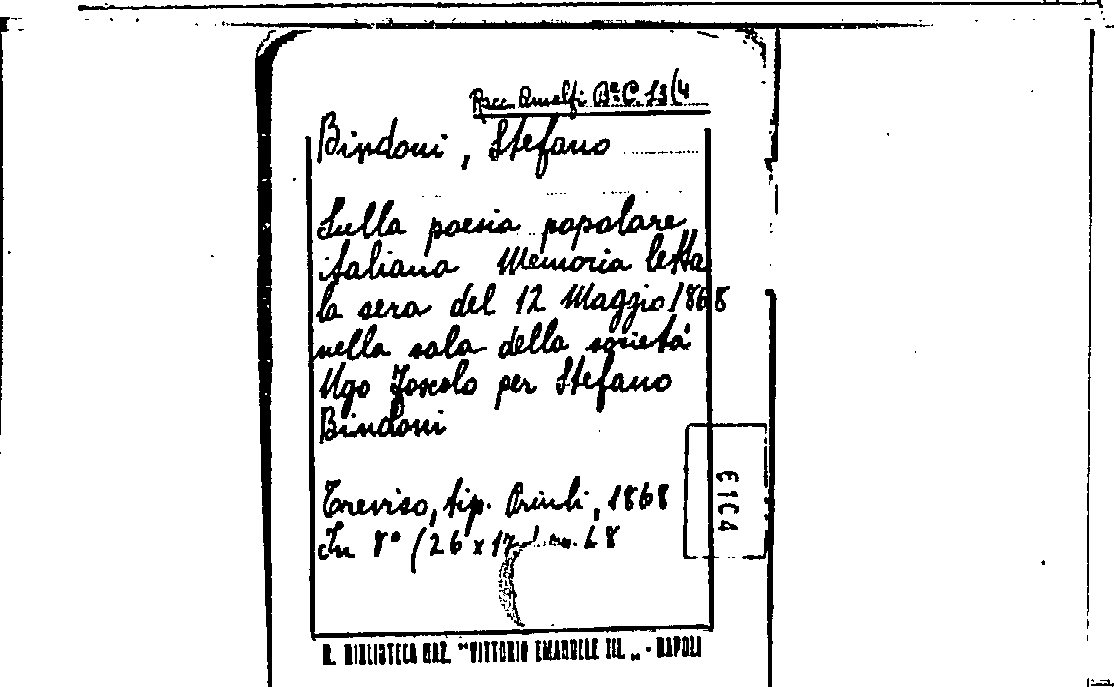 Racc. Amalfi Bª C. 13(4
Bindoni, Stefano
Sulla poesia popolare
italiana Memoria letta
la sera del 12 Maggio 1868
nella sala della società
Ugo Foscolo per Stefano
Bindoni
Treviso, tip. Priuli, 1868
In 8° (26 x 17 68
E1C4
R. BIBLIOTECA NAZ. "VITTORIO EMANUELE III. „ - NAPOLI